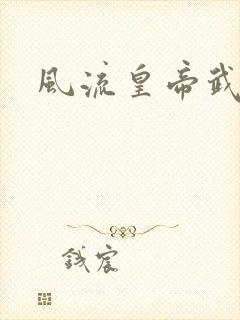 風流皇帝武
錢宸